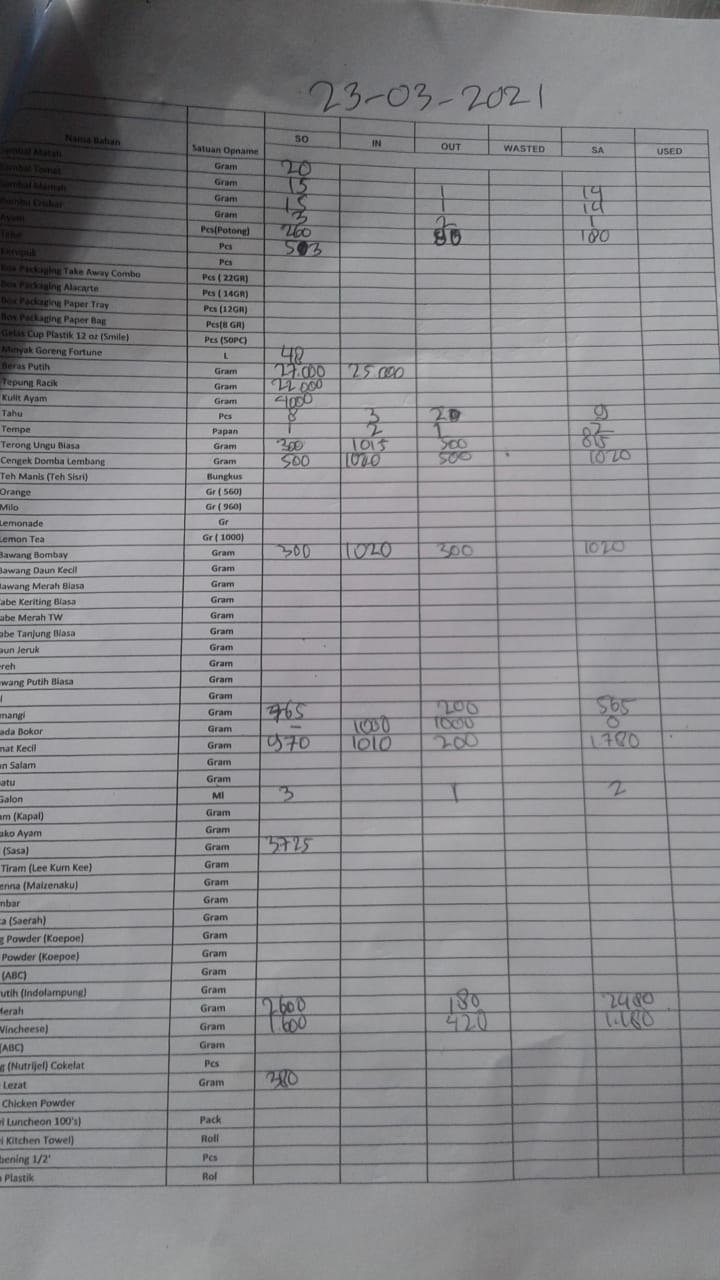 23-03-2021
Nama Bahan Satuan Opname SO IN OUT WASTED SA USED
Sambal Matah Gram 20
Sambal Tomat Gram 15 1 14
Gram 15 1 14
Gram 3 2 1
Ayam Pcs(Potong) 260 80 180
Tahu Pcs 503
Kerupuk Pcs
Box Packaging Take Away Combo Pcs ( 22GR)
Box Packaging Alacarte Pcs ( 14GR)
Box Packaging Paper Tray Pcs (12GR)
Box Packaging Paper Bag Pcs(8 GR)
Gelas Cup Plastik 12 oz (Smile) Pcs (50PC)
Minyak Goreng Fortune L 48
Beras Putih Gram 27.000 25.000
Tepung Racik Gram 22.000
Kulit Ayam Gram 4000
Tahu Pcs 8 3 2 9
Tempe Papan 1 2 1 2
Terong Ungu Biasa Gram 300 1015 500 815
Cengek Domba Lembang Gram 500 1020 500 1020
Teh Manis (Teh Sisri) Bungkus
Orange Gr ( 560)
Milo Gr ( 960)
Lemonade Gr
Lemon Tea Gr ( 1000)
Bawang Bombay Gram 300 1020 300 1020
Bawang Daun Kecil Gram
Bawang Merah Biasa Gram
abe Keriting Biasa Gram
abe Merah TW Gram
abe Tanjung Biasa Gram
aun Jeruk Gram
reh Gram
wang Putih Biasa Gram
i Gram
mangi Gram 765 200 565
ada Bokor Gram - 1000 1000 0
nat Kecil Gram 970 1010 200 1.780
n Salam Gram
atu Gram
Galon Ml 3 1 2
am (Kapal) Gram
ako Ayam Gram
(Sasa) Gram 3725
Tiram (Lee Kum Kee) Gram
enna (Maizenaku) Gram
mbar Gram
a (Saerah) Gram
g Powder (Koepoe) Gram
Powder (Koepoe) Gram
(ABC) Gram
utih (Indolampung) Gram
Merah Gram 2600 180 2480
Wincheese) Gram 1.600 420 1.180
(ABC) Gram
g (Nutrijel) Cokelat Pcs
Lezat Gram 380
Chicken Powder
i Luncheon 100's) Pack
i Kitchen Towel) Roll
bening 1/2' Pcs
Plastik Rol